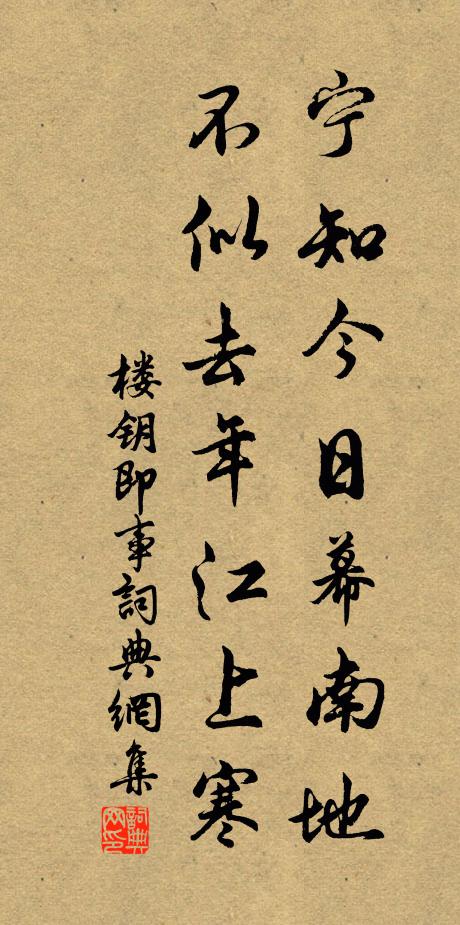 宁知今日幕南地
不似去年江上寒
楼钥即事詞典網集
詞典网印